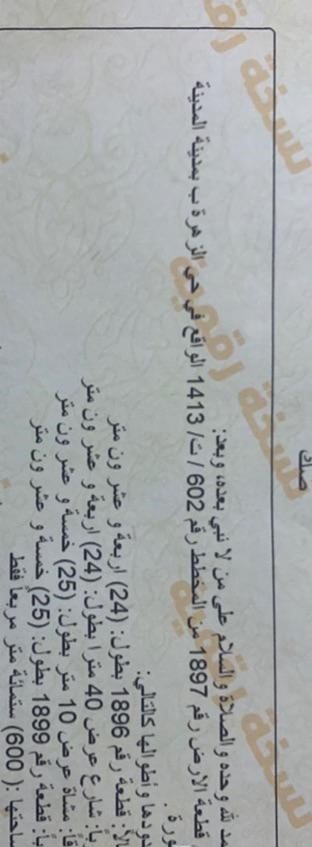 صك
لله وحده والصلاة والسلام على من لا نبي بعده، وبعد:
قطعة الارض رقم 1897 من المخطط رقم 602 / ت / 1413 الواقع في حي الزهرة ب بمدينة المدينة
ورة .
دها وأطوالها كالتالي:
قطعة رقم 1896 بطول: (24) اربعة و عشرون متر
شارع عرض 40 مترا بطول: (24) اربعة و عشرون متر
مشاة عرض 10 متر بطول: (25) خمسة و عشرون متر
قطعة رقم 1899 بطول: (25) خمسة و عشرون متر
احتها :( 600) ستمائة متر مربعا فقط
نسخة رقمية
نسخة رقمية